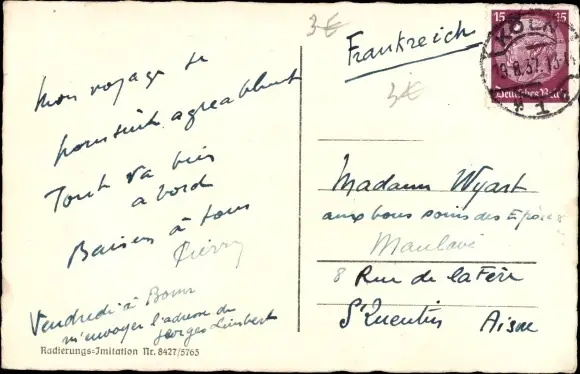 3€
Frankreich
3€
15 15
KÖLN
9.8.37
Deutsches Reich
1
Mon voyage se
poursuit agreablement
Tout va bien
a bord
Baisers à tous
Pierre
Vendredi à Bonn
m'envoyer l'adresse de
Georges Limbert
Radierungs-Imitation Nr. 8427/5763
Madame Wyart
aux bons soins des Epoux
8 Rue de la Fère
St Quentin Aisne